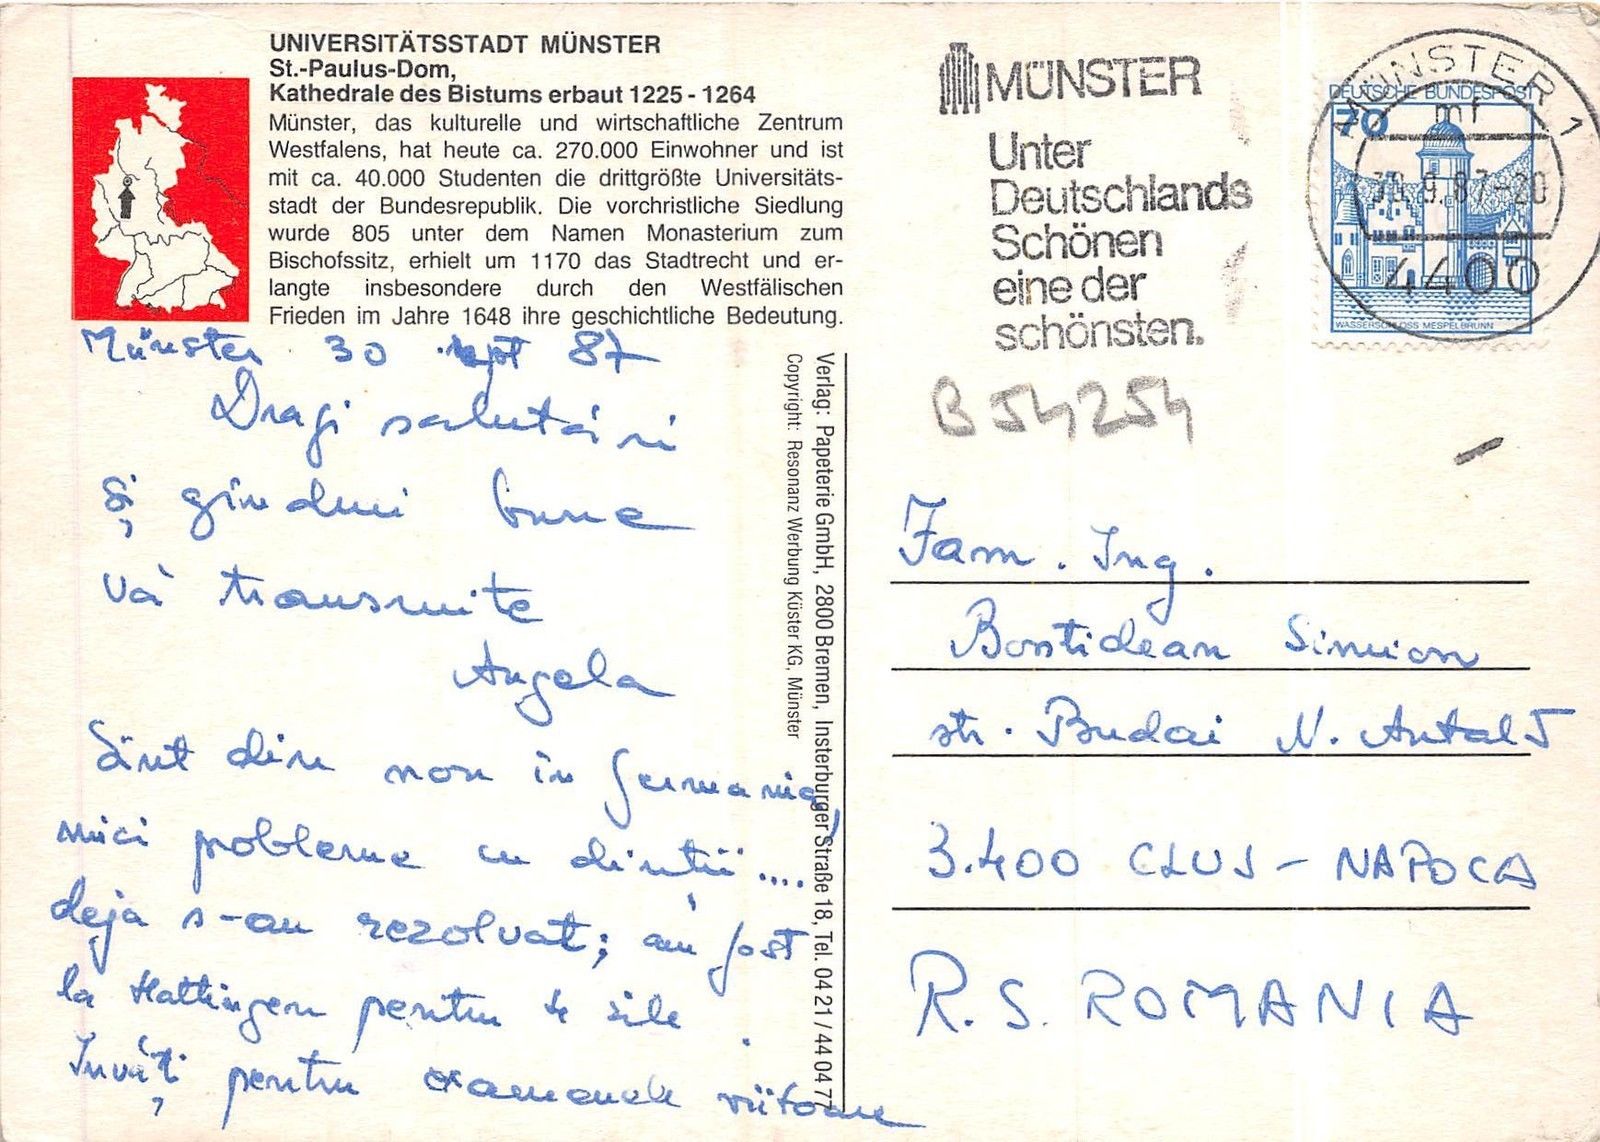 UNIVERSITÄTSSTADT MÜNSTER
St.-Paulus-Dom,
Kathedrale des Bistums erbaut 1225 - 1264
Münster, das kulturelle und wirtschaftliche Zentrum
Westfalens, hat heute ca. 270.000 Einwohner und ist
mit ca. 40.000 Studenten die drittgrößte Universitäts-
stadt der Bundesrepublik. Die vorchristliche Siedlung
wurde 805 unter dem Namen Monasterium zum
Bischofssitz, erhielt um 1170 das Stadtrecht und er-
langte insbesondere durch den Westfälischen
Frieden im Jahre 1648 ihre geschichtliche Bedeutung.
Münster 30 sept 87
Dragi salutări
și gînduri bune
vă transmite
Angela
Sînt din nou in Germania,
mici probleme cu dinții....
deja s-au rezolvat; am fost
la Hattingen pentru 4 zile
Învăț pentru examenele viitoare
Verlag: Papeterie GmbH, 2800 Bremen, Insterburger Straße 18, Tel. 04 21 / 44 04 77
Copyright: Resonanz Werbung Küster KG, Münster
MÜNSTER
Unter
Deutschlands
Schönen
eine der
schönsten.
MÜNSTER 1
mf
30.9.87-20
4400
DEUTSCHE BUNDESPOST
70
WASSERSCHLOSS MESPELBRUNN
B 54254
Fam. Ing.
Bostidean Simion
str. Budai N. Antal 5
3.400 CLUJ - NAPOCA
R.S. ROMANIA